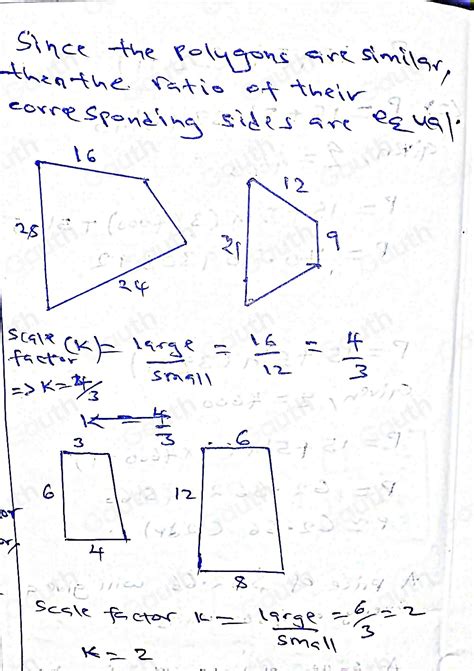 Since the polygons are similar,
then the ratio of their
corresponding sides are equal.
16
28
24
12
21
9
Scale factor (K) = large/small = 16/12 = 4/3
=> K = 4/3
K = 4/3
3
6
4
6
12
8
Scale factor K = large/small = 6/3 = 2
K = 2